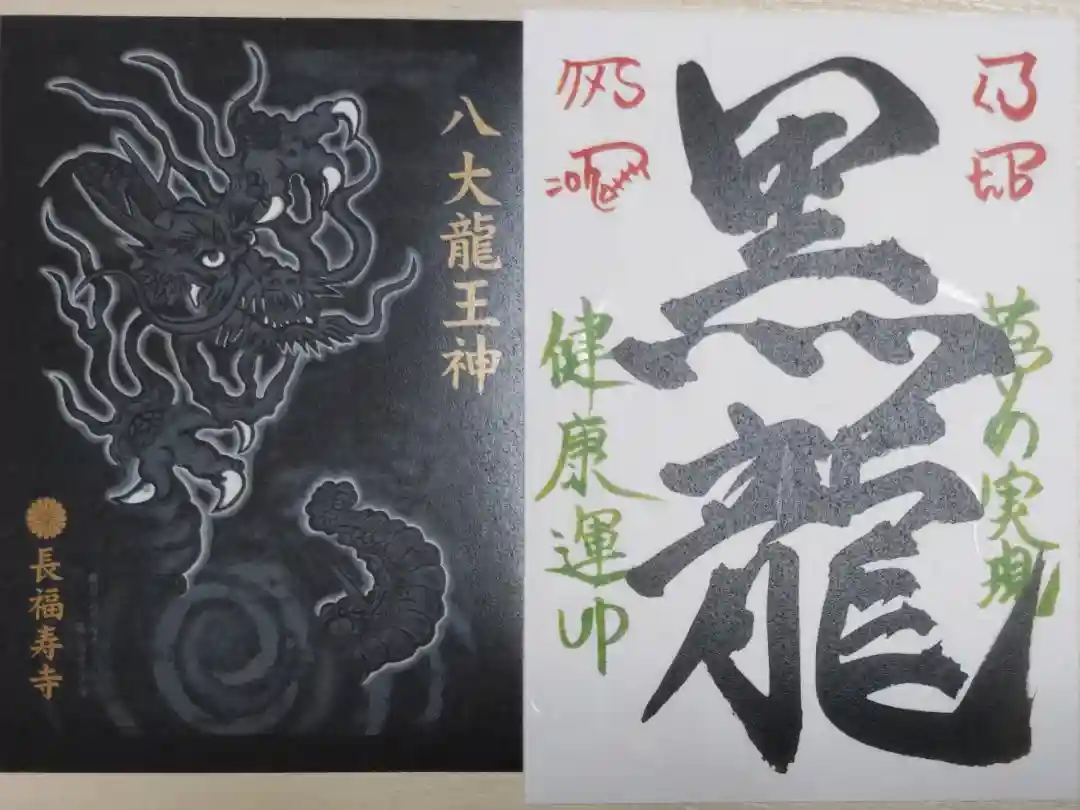 八大龍王神
長福寿寺
黒龍
夢の実現
健康運UP